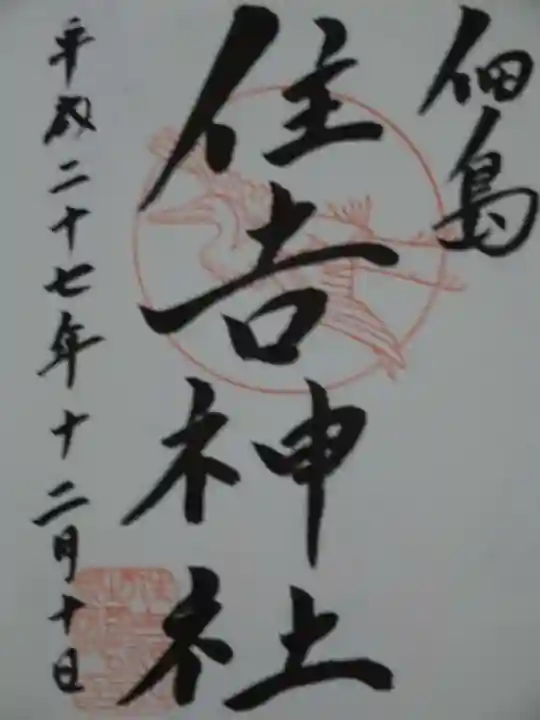 佃島
住吉神社
平成二十七年十二月十日